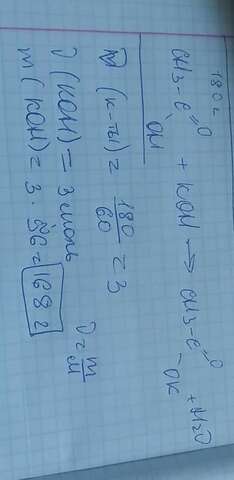 180 г
CH3-C=O + KOH → CH3-C=O + H2O
OH
OK
M (к-ты) = 180/60 = 3
ν (KOH) = 3 моль
ν = m/M
m (KOH) = 3 · 56 = 168 г